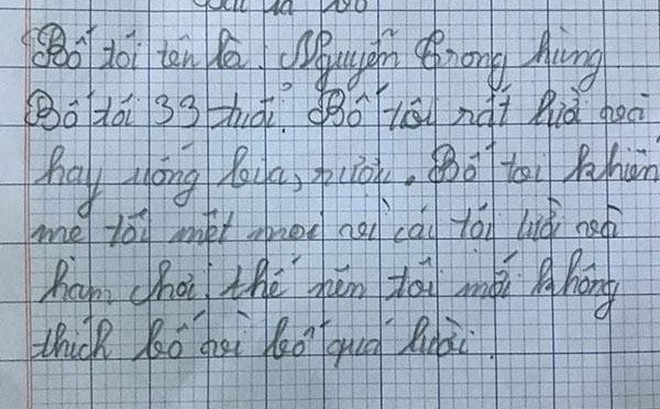 Bố tôi tên là Nguyễn Trong hùng
Bố tôi 33 tuổi. Bố tôi rất lười
hay uống bia, rượu. Bố tôi khiến
mẹ tôi mệt mỏi cái tôi lười
ham chơi thế nên tôi mới không
thích bố bố quá lười.